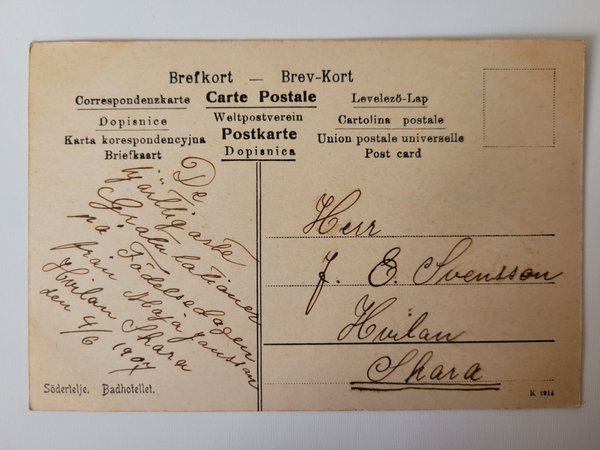 Brefkort — Brev-Kort
Correspondenzkarte Carte Postale Levelező-Lap
Dopisnice Weltpostverein Cartolina postale
Karta korespondencyjna Postkarte Union postale universelle
Briefkaart Dopisnica Post card
De
hjärtligaste
Gratulationer
på Födelsedagen
från Maja Jansson
Hvilan Skara
den 4/6 1907
Herr
J. E. Svensson
Hvilan
Skara
Södertelje. Badhotellet.
K 1914